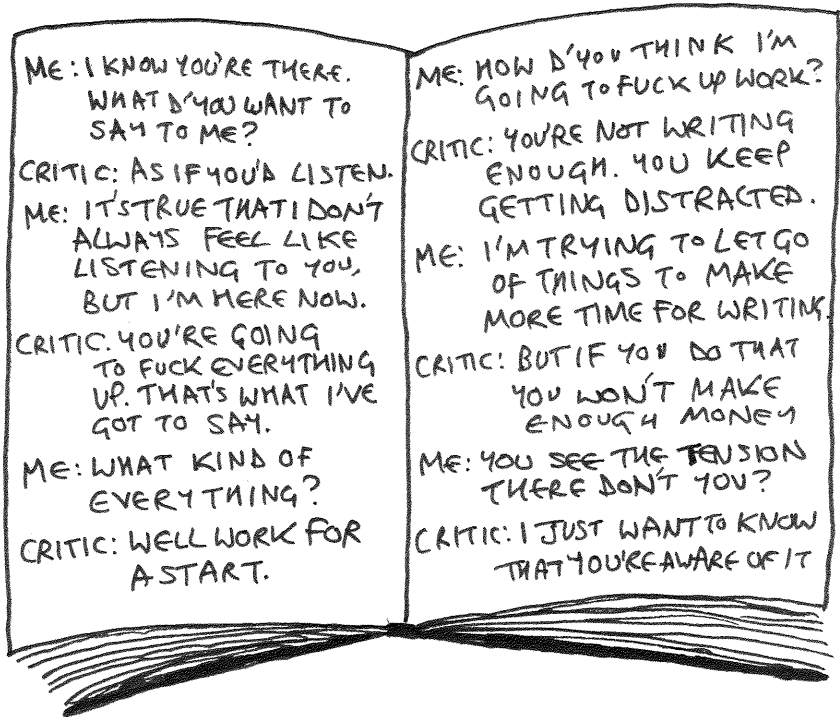 ME: I KNOW YOU'RE THERE.
WHAT D'YOU WANT TO
SAY TO ME?
CRITIC: AS IF YOU'D LISTEN.
ME: IT'S TRUE THAT I DON'T
ALWAYS FEEL LIKE
LISTENING TO YOU,
BUT I'M HERE NOW.
CRITIC. YOU'RE GOING
TO FUCK EVERYTHING
UP. THAT'S WHAT I'VE
GOT TO SAY.
ME: WHAT KIND OF
EVERYTHING?
CRITIC: WELL WORK FOR
A START.
ME: HOW D'YOU THINK I'M
GOING TO FUCK UP WORK?
CRITIC: YOU'RE NOT WRITING
ENOUGH. YOU KEEP
GETTING DISTRACTED.
ME: I'M TRYING TO LET GO
OF THINGS TO MAKE
MORE TIME FOR WRITING.
CRITIC: BUT IF YOU DO THAT
YOU WON'T MAKE
ENOUGH MONEY
ME: YOU SEE THE TENSION
THERE DON'T YOU?
CRITIC: I JUST WANT TO KNOW
THAT YOU'RE AWARE OF IT